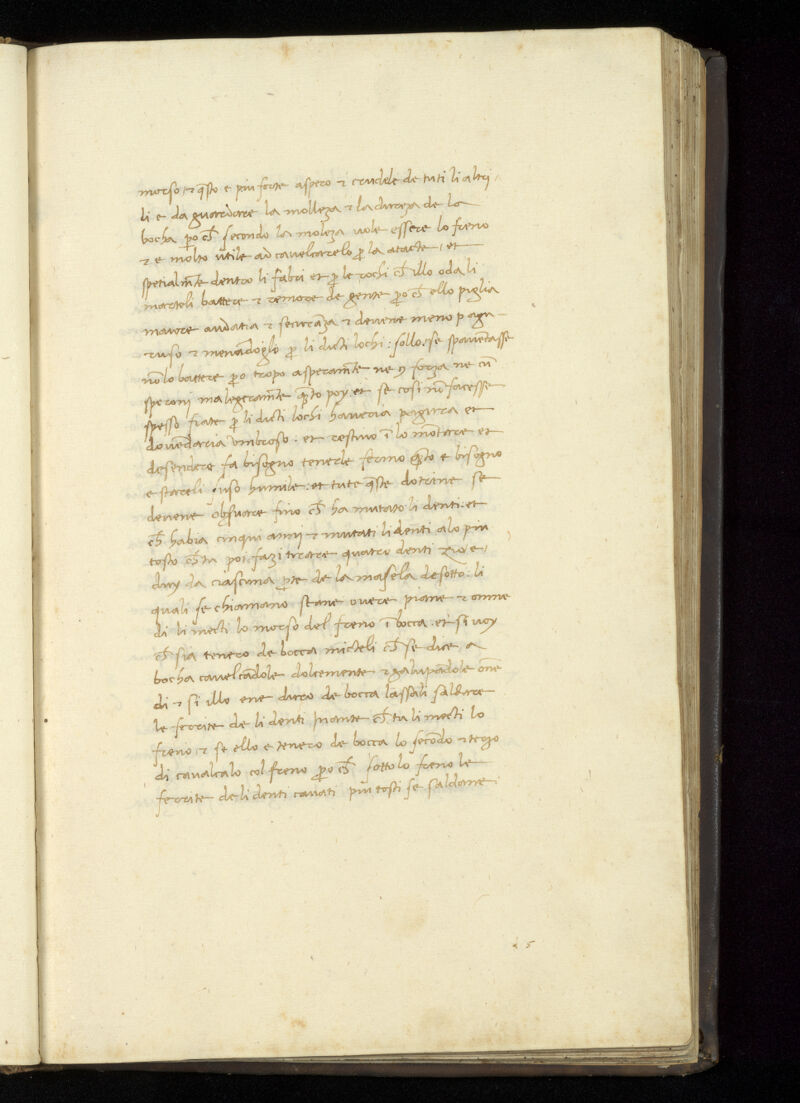 morso. et q̄sto e piu forte aspero ⁊ crudele de tuti li altri.
li e da guardare la molleza ⁊ la dureza de la
bocha ꝑo ch̄ secondo la moleza vole essere lo freno
⁊ e molto utile ad cavalcarelo ꝑ la et
spetialm̄te dentro li fabri et ꝑ le rochi ch̄ illo oda li
marteli battere ⁊ remore de gente ꝑo ch̄ ello piglia
maiore audatia ⁊ securāza ⁊ devene meno pagu
ruso ⁊ menādoglo ꝑ li dicti lochi: se spavētasse
nō lo battere ꝑo tropo asperam̄te ne ꝑ forza ne cū
speroni ma legeram̄te q̄to poy. et se cosi nō facesse
spesso fiate ꝑ li dicti lochi haveria pagura et
dovēdaria umbroso. et restivo ī lo mōtare et
desendere fa bisogno tenerle fermo q̄to e bisogno
e stareli suso humile. et tute q̄ste dotrine se
devene obs̄uare fino ch̄ ha mutato li denti. et
ch̄ habia cinqui anni ⁊ mutati li denti alo piu
tosto ch̄ tu poi. fazi tirare quatro denti zo e.
duy da ciascuna ꝑte de la masela desotto. li
quali se chiamano scane overe piane ⁊ omne
di li mecti lo morso del freno ī bocca. et si voy
ch̄ sia tenero de bocca micteli ch̄ se dice a
bocha cavelcādole dolcemente ⁊ galupādole ōne
di ⁊ si illo ene duro de bocca lassali saldare
le ferite de li denti nante ch̄ tu li mecti lo
freno. ⁊ se ello e tenero de bocca lo secōdo ⁊ terzo
di cavalcalo col freno ꝑo ch̄ sotto lo freno le
ferite de li denti cavati piu tosti se saldane
5